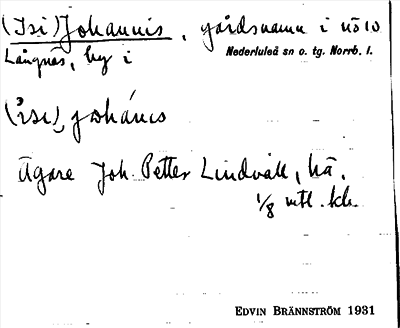 (Isi) Johannis, gårdsnamn i nö 10
Långnäs, by i Nederluleå sn o. tg. Norrb. l.
(ísi) johánis
Ägare Joh. Petter Lindvall, hä.
1/8 mtl. kr.
EDVIN BRÄNNSTRÖM 1931